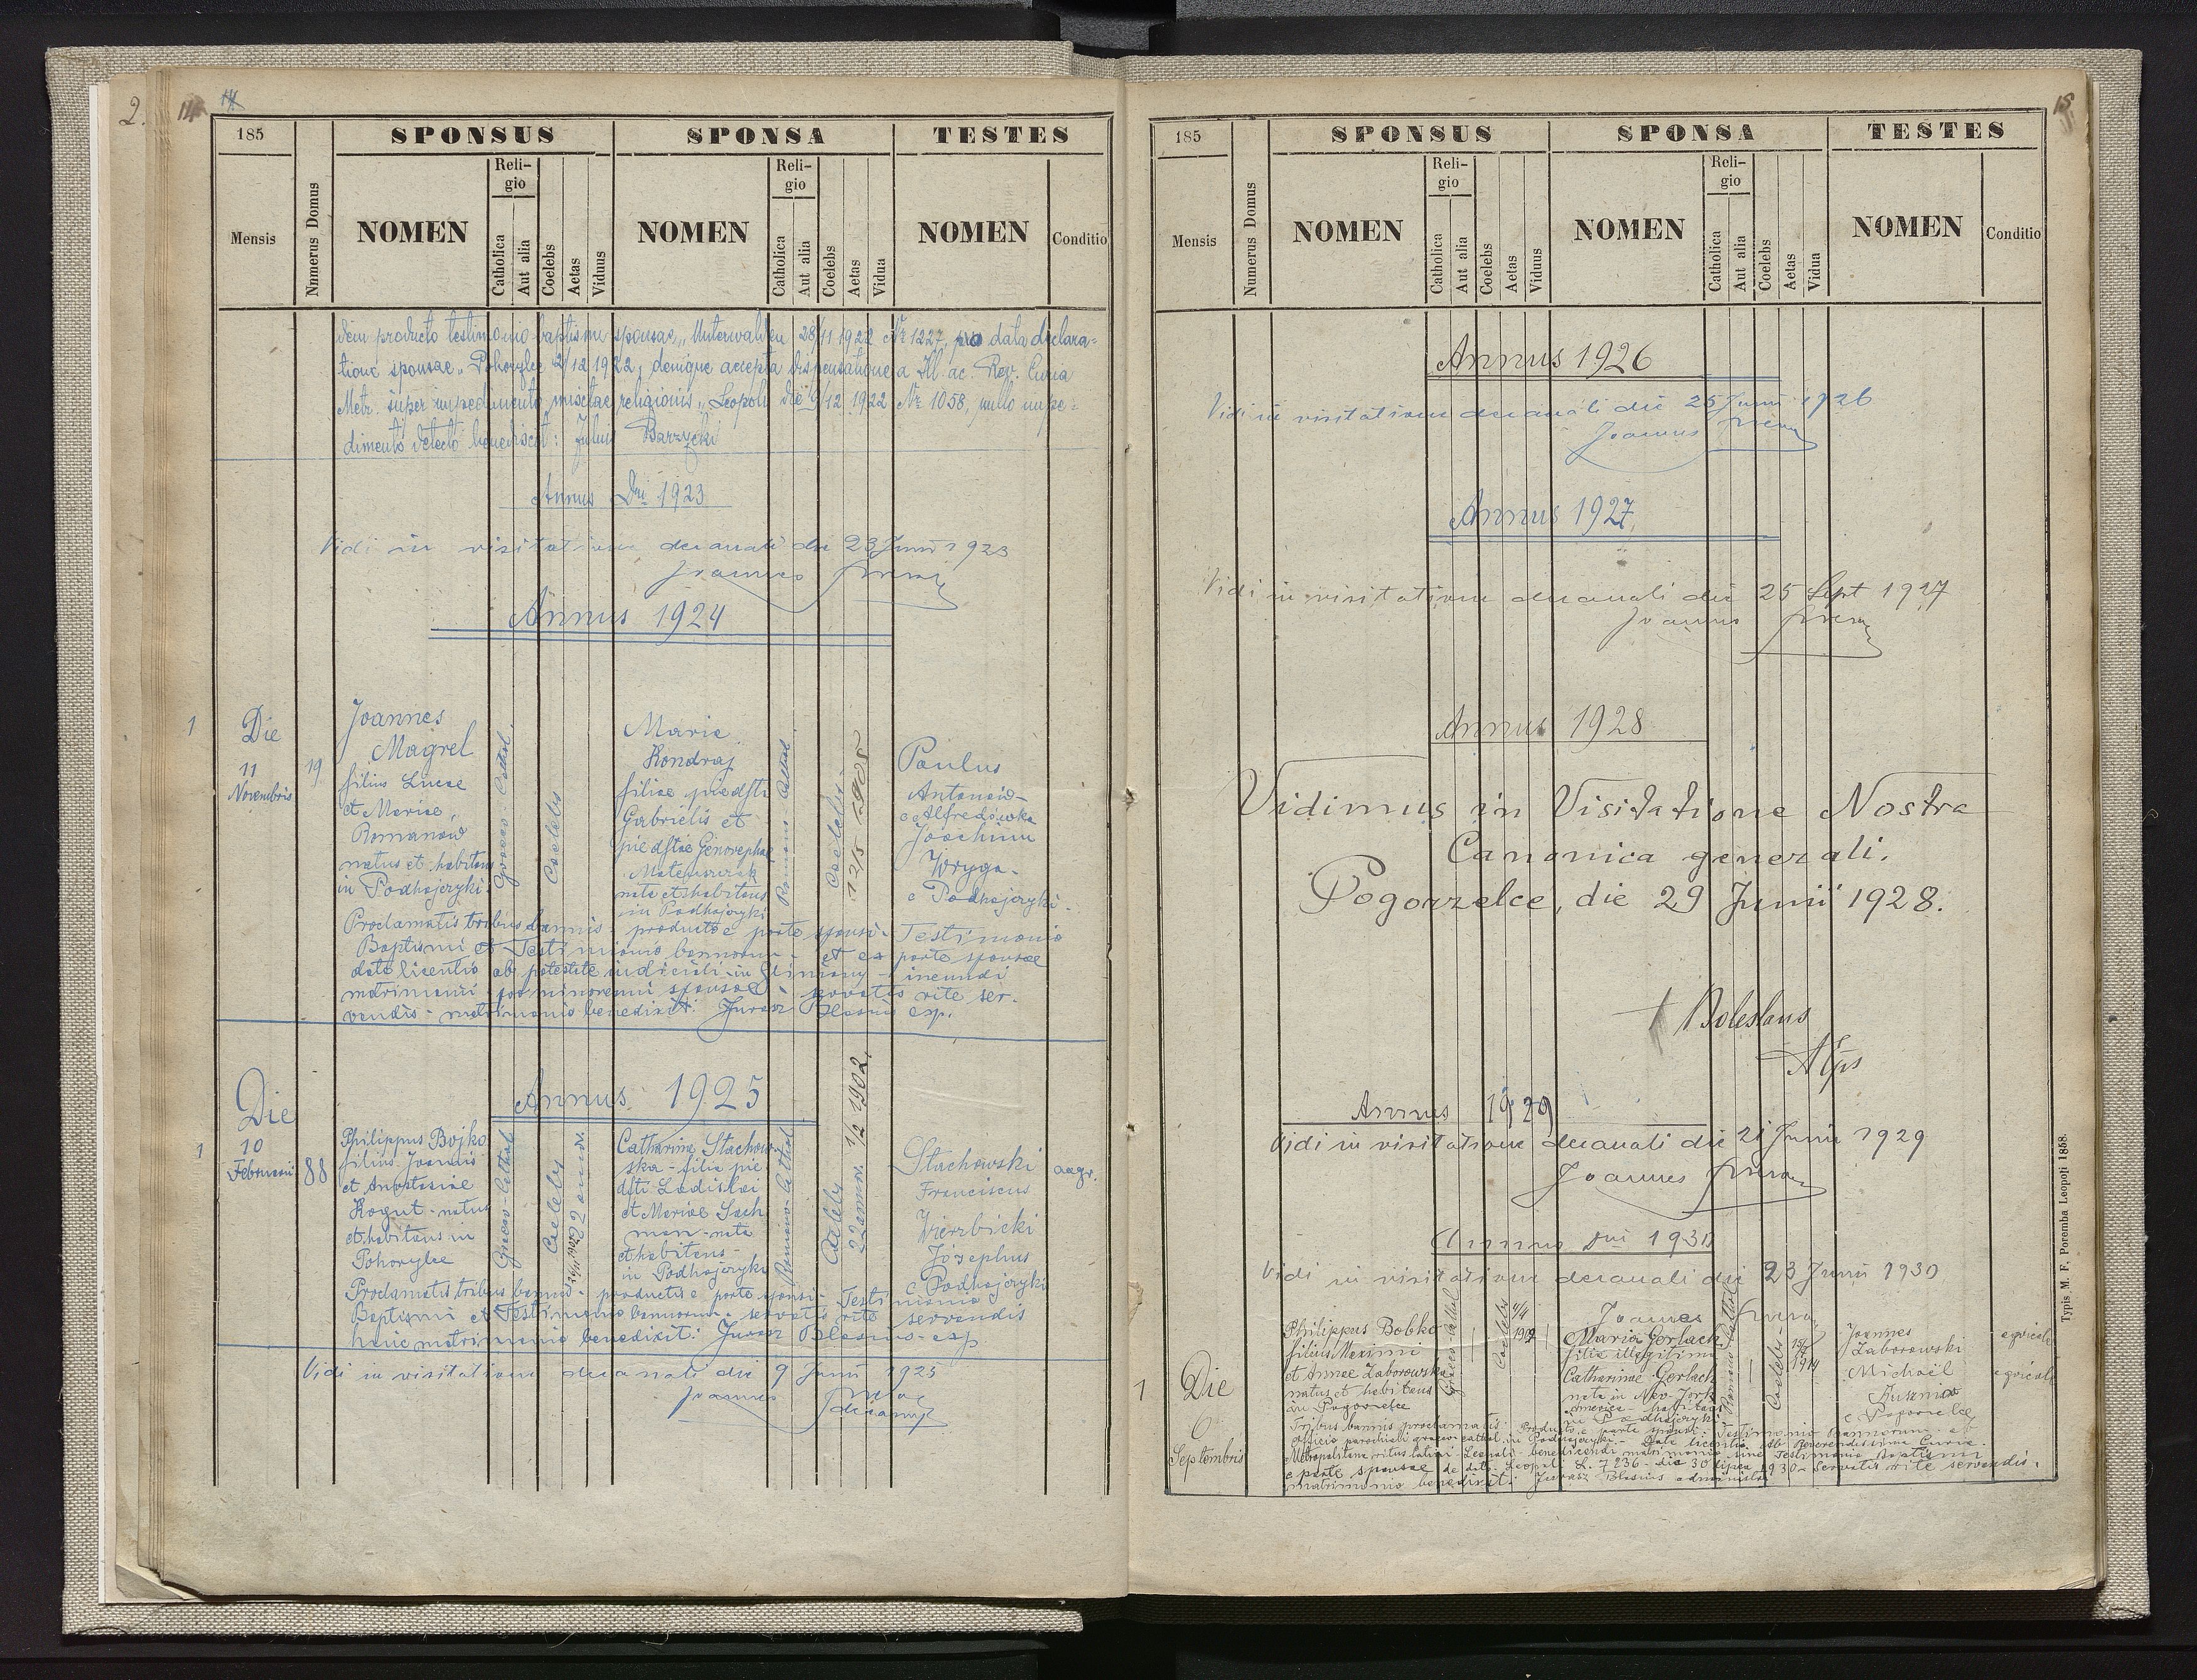 2.
14
185
SPONSUS
SPONSA
TESTES
Mensis
Numerus Domus
NOMEN
Reli-
gio
Catholica
Aut alia
Coelebs
Aetas
Viduus
NOMEN
Reli-
gio
Catholica
Aut alia
Coelebs
Aetas
Vidua
NOMEN
Conditio
dein producto testimonio baptismi sponsae „Unterwalden 28/11 1922 № 1227, pro data declara-
tione sponsae „Pohorylce 2/12 1922, denique accepta dispensatione a Ill. ac. Rev. Curia
Metr. super impedimento mixtae religionis „Leopoli die 9/12 1922 № 1058, nullo impe-
dimento detecto benedixit: Julius Barzycki
Annus Dni 1923
Vidi in visitatione decanali die 23 Junii 1923
Joannes
Annus 1924
1
Die
11
Novembris
19
Joannes
Magrel
filius Lucae
et Mariae,
Romanów
natus et habitans
in Podhajczyki
Graeco Cathol.
Coelebs
Maria
Kondraj
filiae piedfti
Gabrielis et
piedftae Genovephae
nata et habitans
in Podhajczyki
Romano Cathol.
Coelebs
12/5 1905
Paulus
Antoniów
e Alfredówka
Joachim
Wryga
e Podhajczyki.
Proclamatis tribus bannis - producto e parte sponsi - Testimonio
Baptismi et Testimonio bannorum - et ex parte sponsae
data licentia ab potestate judiciali in Gliniany - ineundi
matrimonii per minorenni sponsae - servatis rite ser-
vendis - matrimonio benedixit: Jurasz Blasius exp.
Annus 1925
1
Die
10
Februarii
88
Philippus Bojko
filius Joannis
et Anastasiae
Kogut - natus
et habitans in
Pohorylce
Graeco-Cathol
Coelebs
22 annor.
Catharina Stachow-
ska - filia pie
dfti Ladislai
et Mariae Sach
man - nata
et habitans
in Podhajczyki
Romano-Cathol
Coelebs
22 annor. 1/2 1902.
Stachowski
Franciscus
Wierzbicki
Józephus
e Podhajczyki
aagr.
Proclamatis tribus bannis - productis e parte sponsi - Testimonio
Baptismi et Testimonio bannorum - servatis rite servandis
huic matrimonio benedixit: Jurasz Blasius - exp
Vidi in visitatione decanali die 9 Junii 1925
Joannes
decanus
15
185
SPONSUS
SPONSA
TESTES
Mensis
Numerus Domus
NOMEN
Reli-
gio
Catholica
Aut alia
Coelebs
Aetas
Viduus
NOMEN
Reli-
gio
Catholica
Aut alia
Coelebs
Aetas
Vidua
NOMEN
Conditio
Annus 1926
Vidi in visitatione decanali die 25 Junii 1926
Joannes
Annus 1927.
Vidi in visitatione decanali die 25 Sept 1927
Joannes
Annus 1928
Vidimus in Visitatione Nostra
Canonica generali.
Pogorzelce, die 29 Junii 1928.
† Boleslaus
Aeps
Annus 1929
Vidi in visitatione decanali die 21 Junii 1929
Joannes
Annus Dni 1930
Vidi in visitatione decanali die 23 Junii 1930
Joannes
1
Die
6
Septembris
Philippus Bobko
filius Maximi
et Annae Zaborowska
natus et habitans
in Pogorzelce
Graeco Cathol
Coelebs
4/4
Maria Gerlach
filia illegitima
Catharinae Gerlach
nata in New-Jork
America - habitans
in Podhajczyki
Romano Cathol
Coelebs
1914
Joannes
Zaborowski
agricola
Michaël
Kuzniar
e Pogorzelce
agricola
Tribus bannis proclamatis - Producto e parte sponsi: Testimonio bannorum - ab
officio parochiali graeco-cathol. in Podhajczyki - Data licentia ab Reverendissima Curia
Metropolitana ritus latini - Leopoli - benedicendi matrimonio sine Testimonio baptismi
e parte sponsae de dato Leopoli L. 7236 - die 30 lipca 1930 - Servatis rite servandis.
matrimonio benedixit: Jurasz Blasius administr.
Typis M. F. Poremba Leopoli 1858.